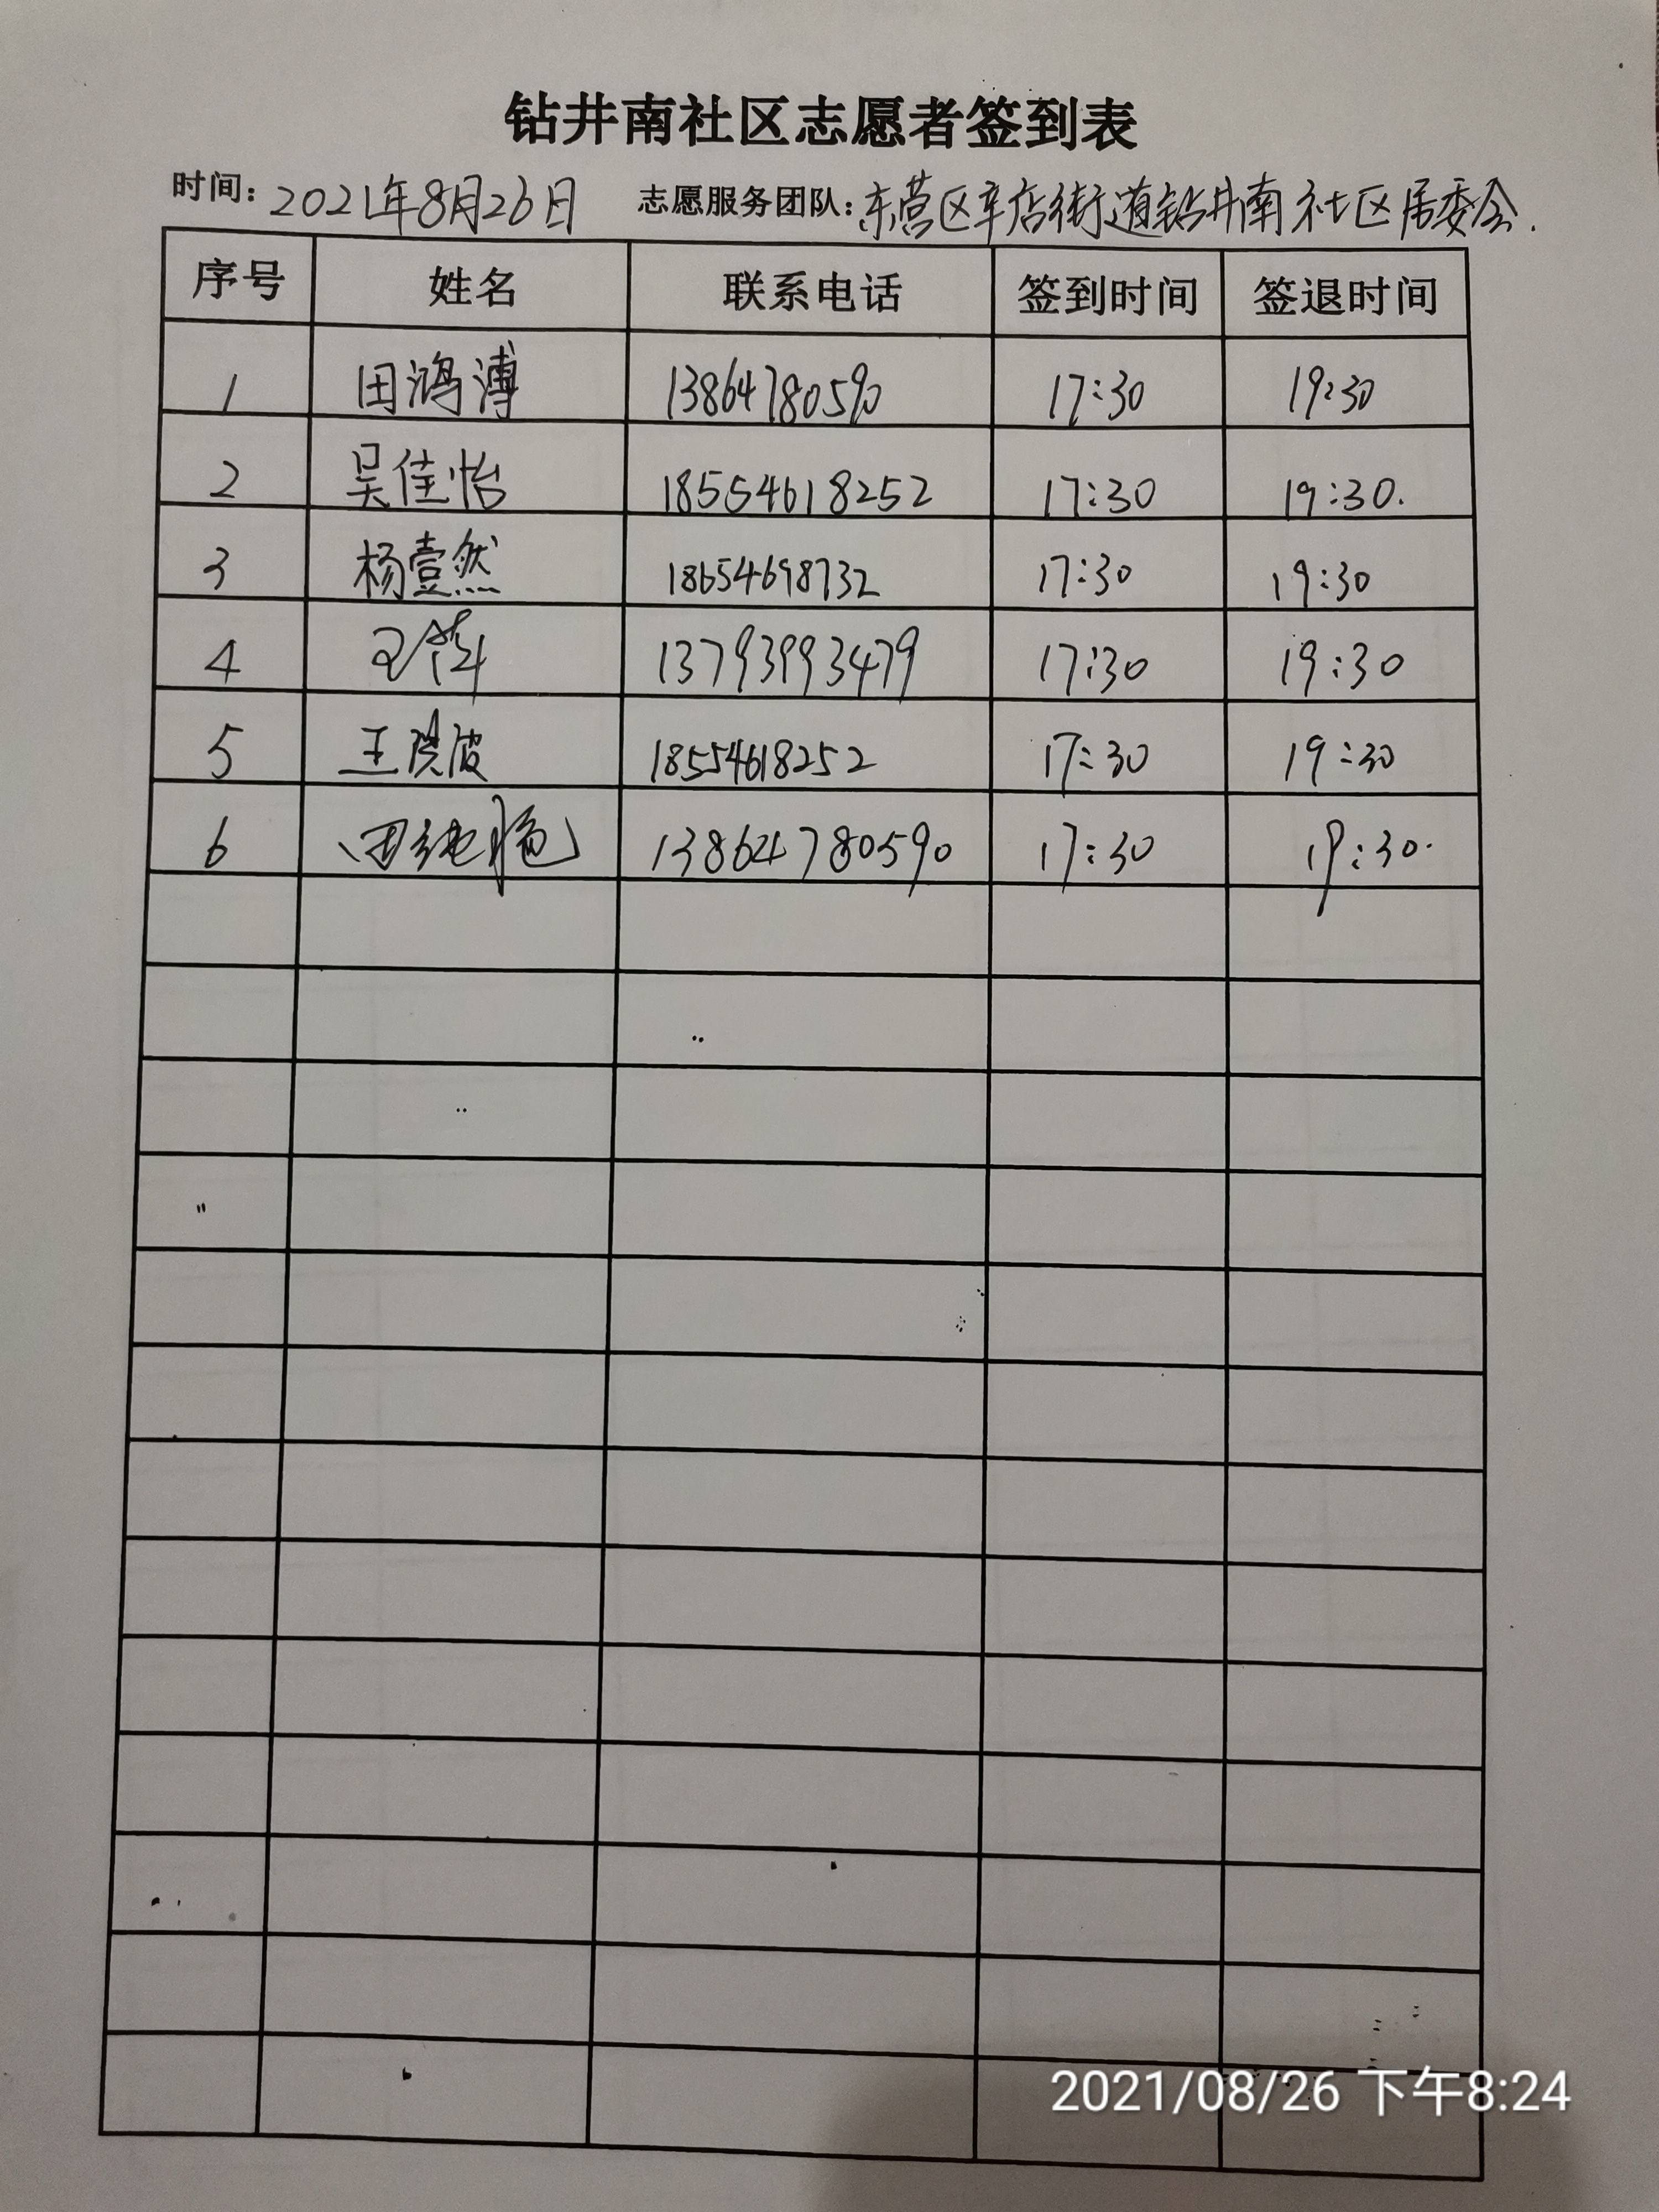 钻井南社区志愿者签到表
时间：2021年8月26日 志愿服务团队：东营区辛店街道钻井南社区居委会.
序号 姓名 联系电话 签到时间 签退时间
1 田鸿溥 13864780590 17:30 19:30
2 吴佳怡 18554618252 17:30 19:30.
3 杨壹然 18654698732 17:30 19:30
4 13793993479 17:30 19:30
5 王洪波 18554618252 17:30 19:30
6 田纯艳 13864780590 17:30 19:30.
2021/08/26 下午8:24